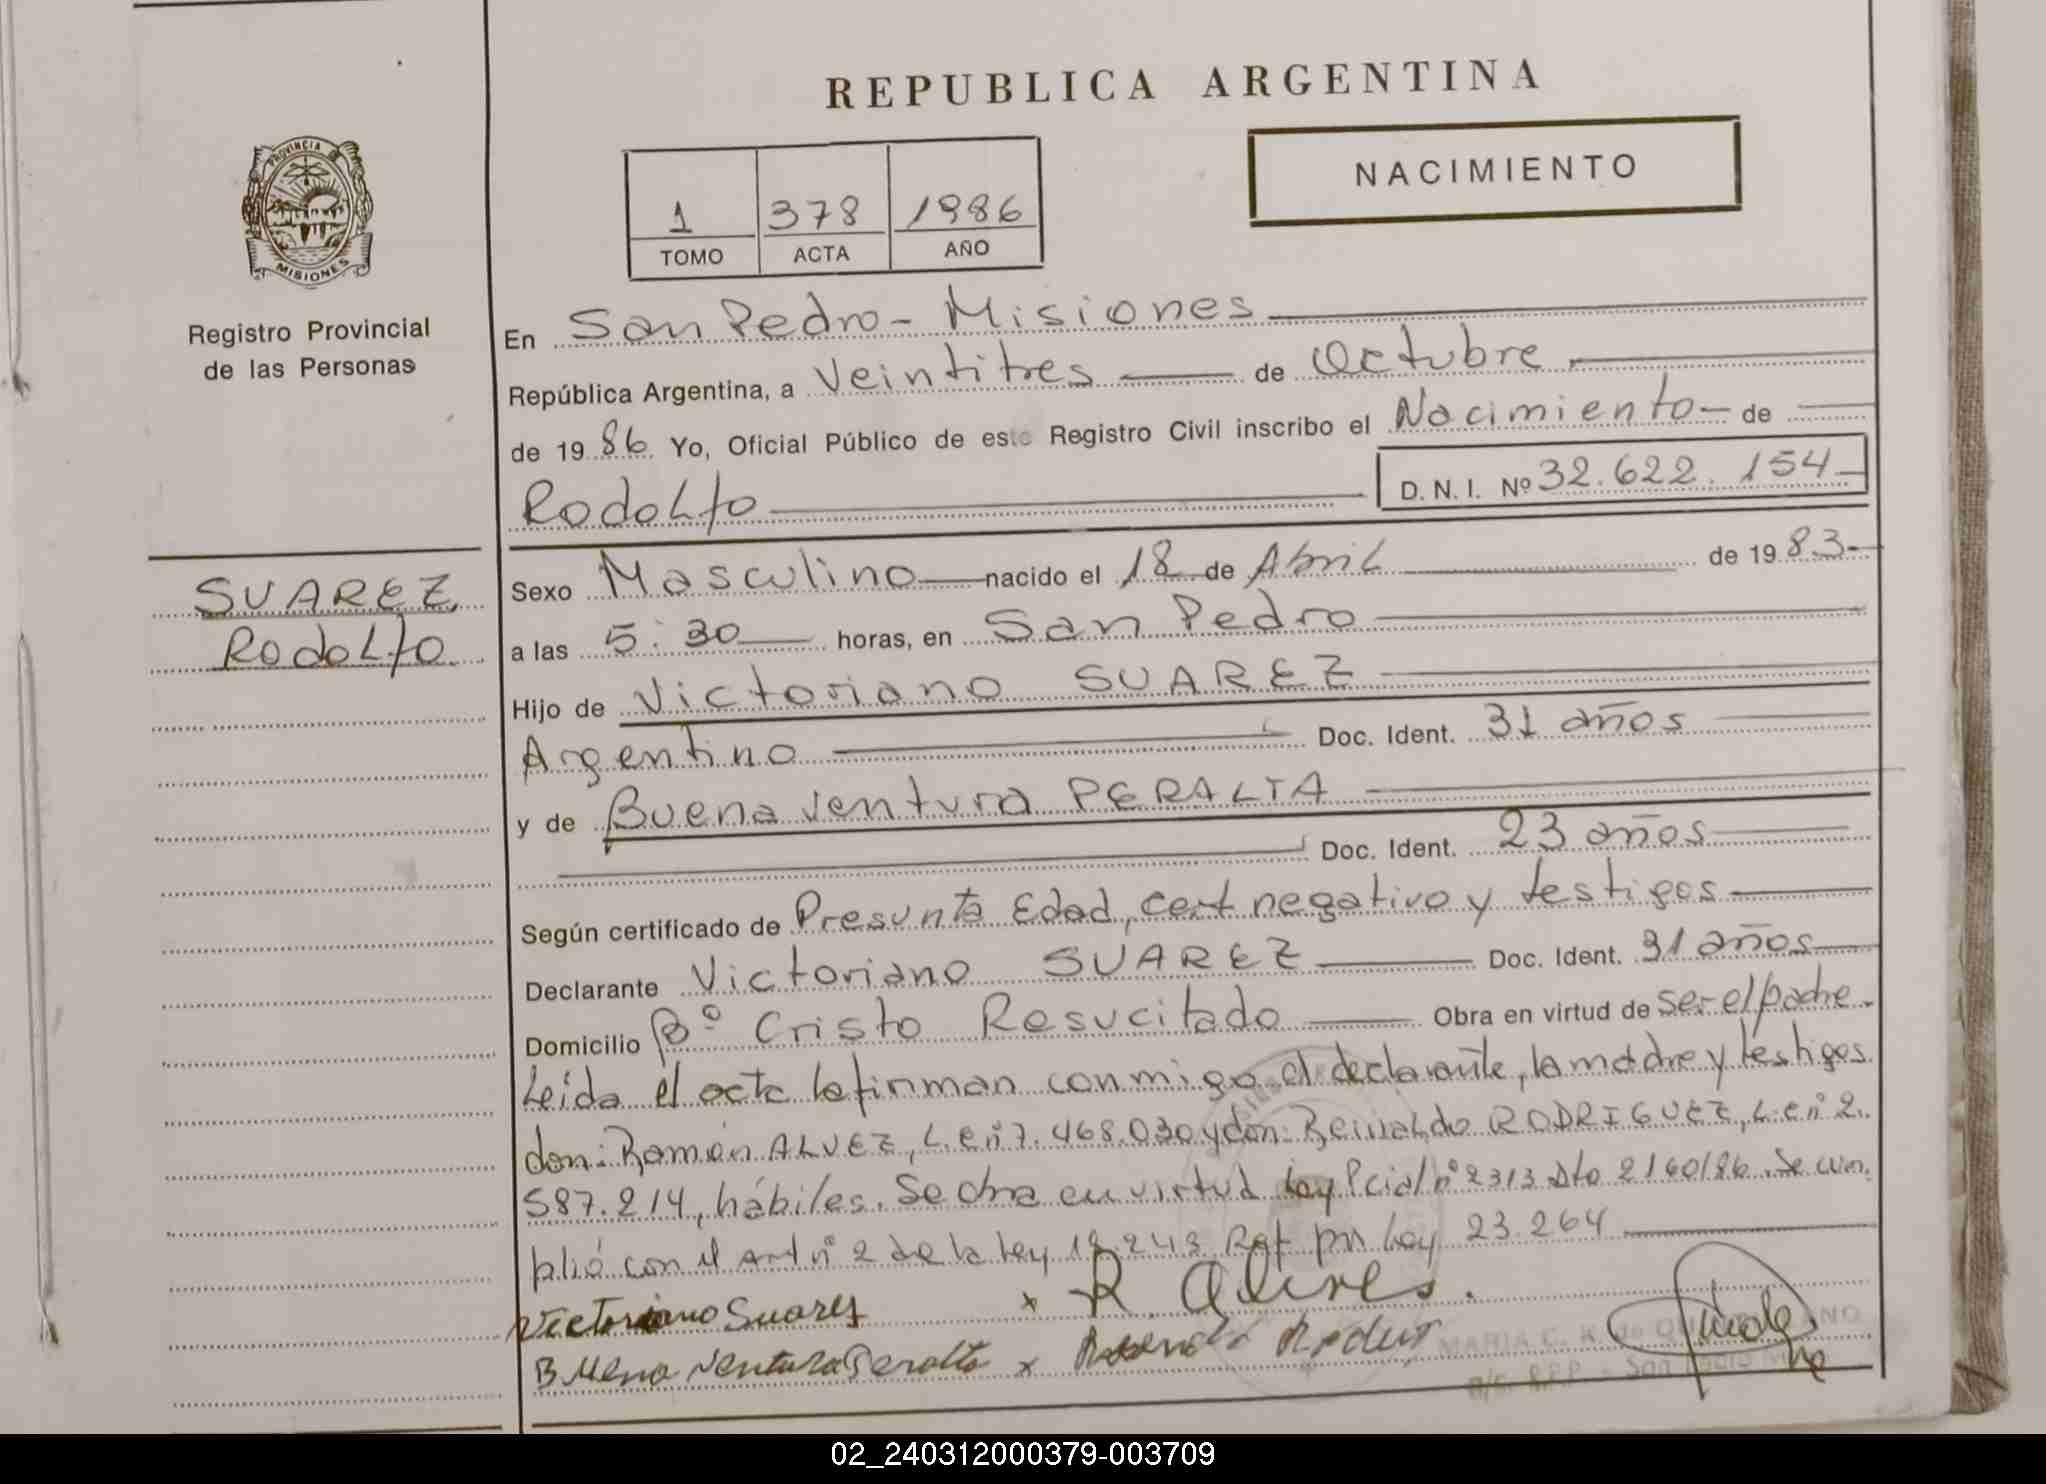 REPUBLICA ARGENTINA
NACIMIENTO
1 378 1986
TOMO ACTA AÑO
PROVINCIA
MISIONES
Registro Provincial
de las Personas
SUAREZ
Rodolfo
En San Pedro - Misiones
República Argentina, a Veintitres de Octubre
de 1986. Yo, Oficial Público de este Registro Civil inscribo el Nacimiento de
Rodolfo D. N. I. Nº 32.622.154
Sexo Masculino nacido el 18 de Abril de 1983
a las 5:30 horas, en San Pedro
Hijo de Victoriano SUAREZ
Argentino Doc. Ident. 31 años
y de Buena Ventura PERALTA
Doc. Ident. 23 años
Según certificado de Presunta Edad, cert negativo y testigos
Declarante Victoriano SUAREZ Doc. Ident. 31 años
Domicilio Bº Cristo Resucitado Obra en virtud de ser el padre.
Leída el acta la firman conmigo el declarante, la madre y testigos
don: Ramón ALVEZ, L.E nº 7.468.030 y don: Reinaldo RODRIGUEZ, L.E nº 2.
587.214, hábiles. Se obra en virtud Ley Pcial nº 2313 Dto 2160/86. Se cum
plió con el Art nº 2 de la Ley 18.248 por Ley 23.264
Victoriano Suares x R. Alves.
Buena Ventura Peralta x
MARIA C. K. de
R.P.P. - San Pedro
02_240312000379-003709